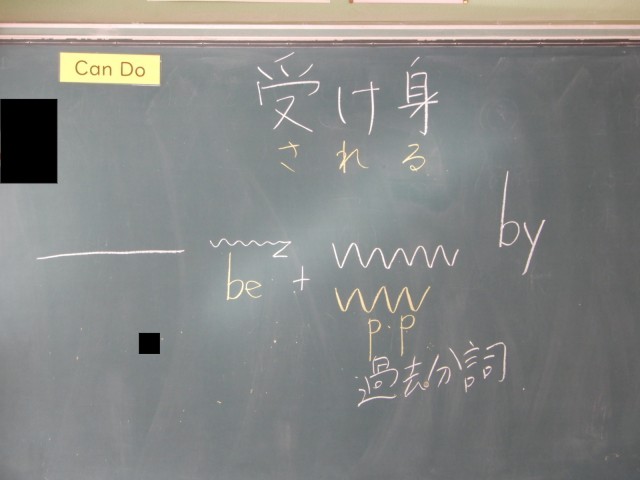 Can Do
受け身
される
by
be +
p.p
過去分詞